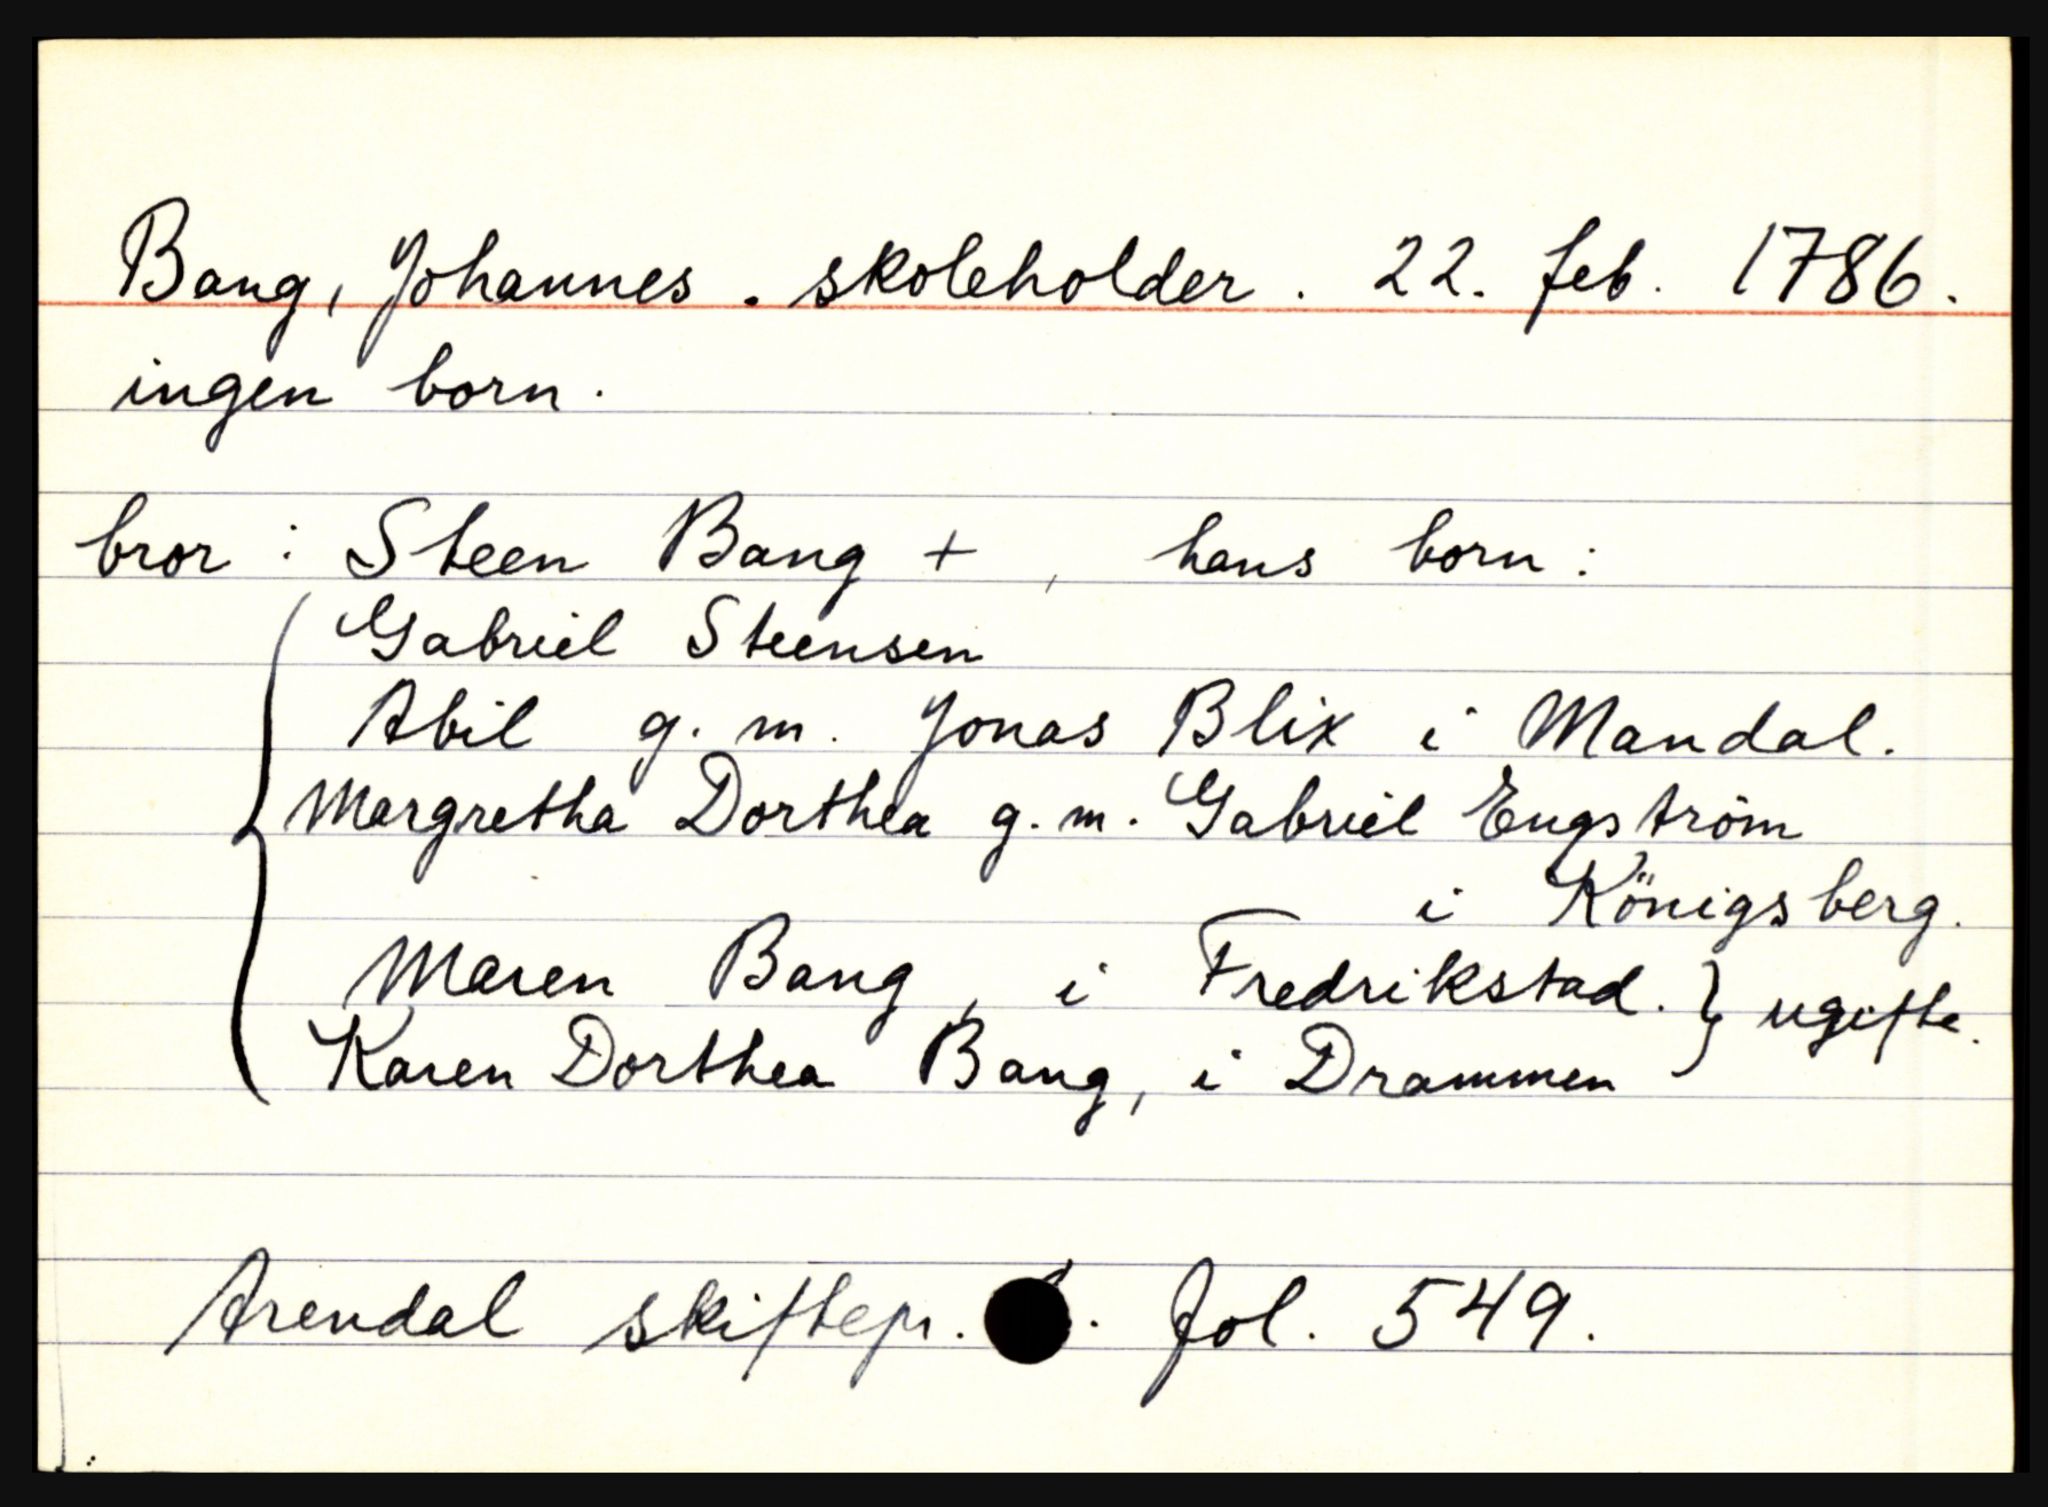 Bang, Johannes. skoleholder. 22. feb. 1786.
ingen born.
bror: Steen Bang +, hans born:
Gabriel Steensen
Abil g. m. Jonas Blix i Mandal.
Margretha Dorthea g. m. Gabriel Engström
i Königsberg.
Maren Bang, i Fredrikstad. } ugifte.
Karen Dorthea Bang, i Drammen
Arendal skiftepr. fol. 549.